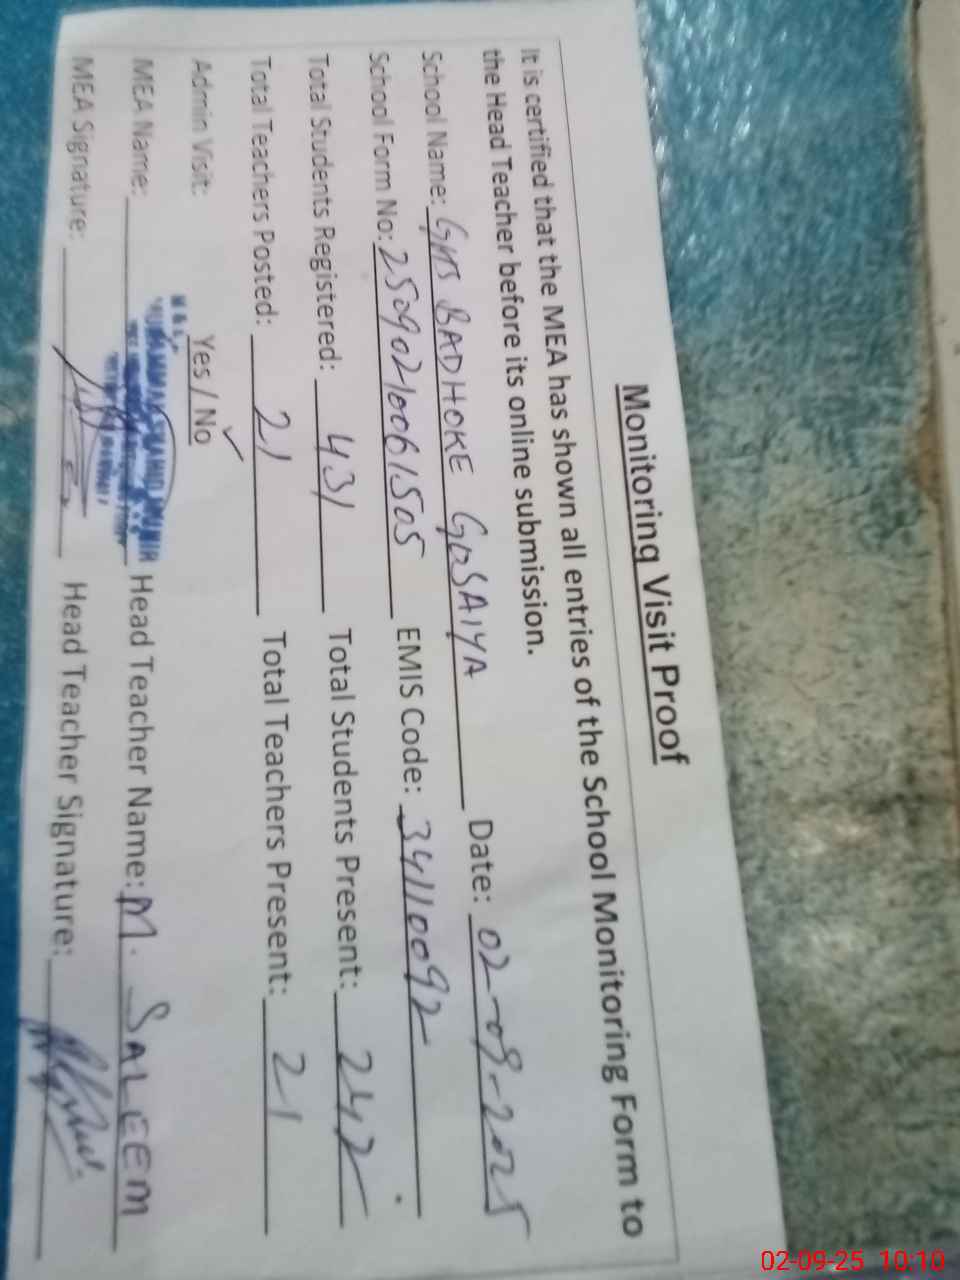 Monitoring Visit Proof
It is certified that the MEA has shown all entries of the School Monitoring Form to
the Head Teacher before its online submission.
School Name: GHS BADHOKE GOSAIYA Date: 02-09-2025
School Form No: 25090210061505 EMIS Code: 34110092
Total Students Registered: 431 Total Students Present: 242
Total Teachers Posted: 21 Total Teachers Present: 21
Admin Visit: Yes / No ✓
MEA Name: Head Teacher Name: M. SALEEM
MEA Signature: Head Teacher Signature:
02-09-25 10:10